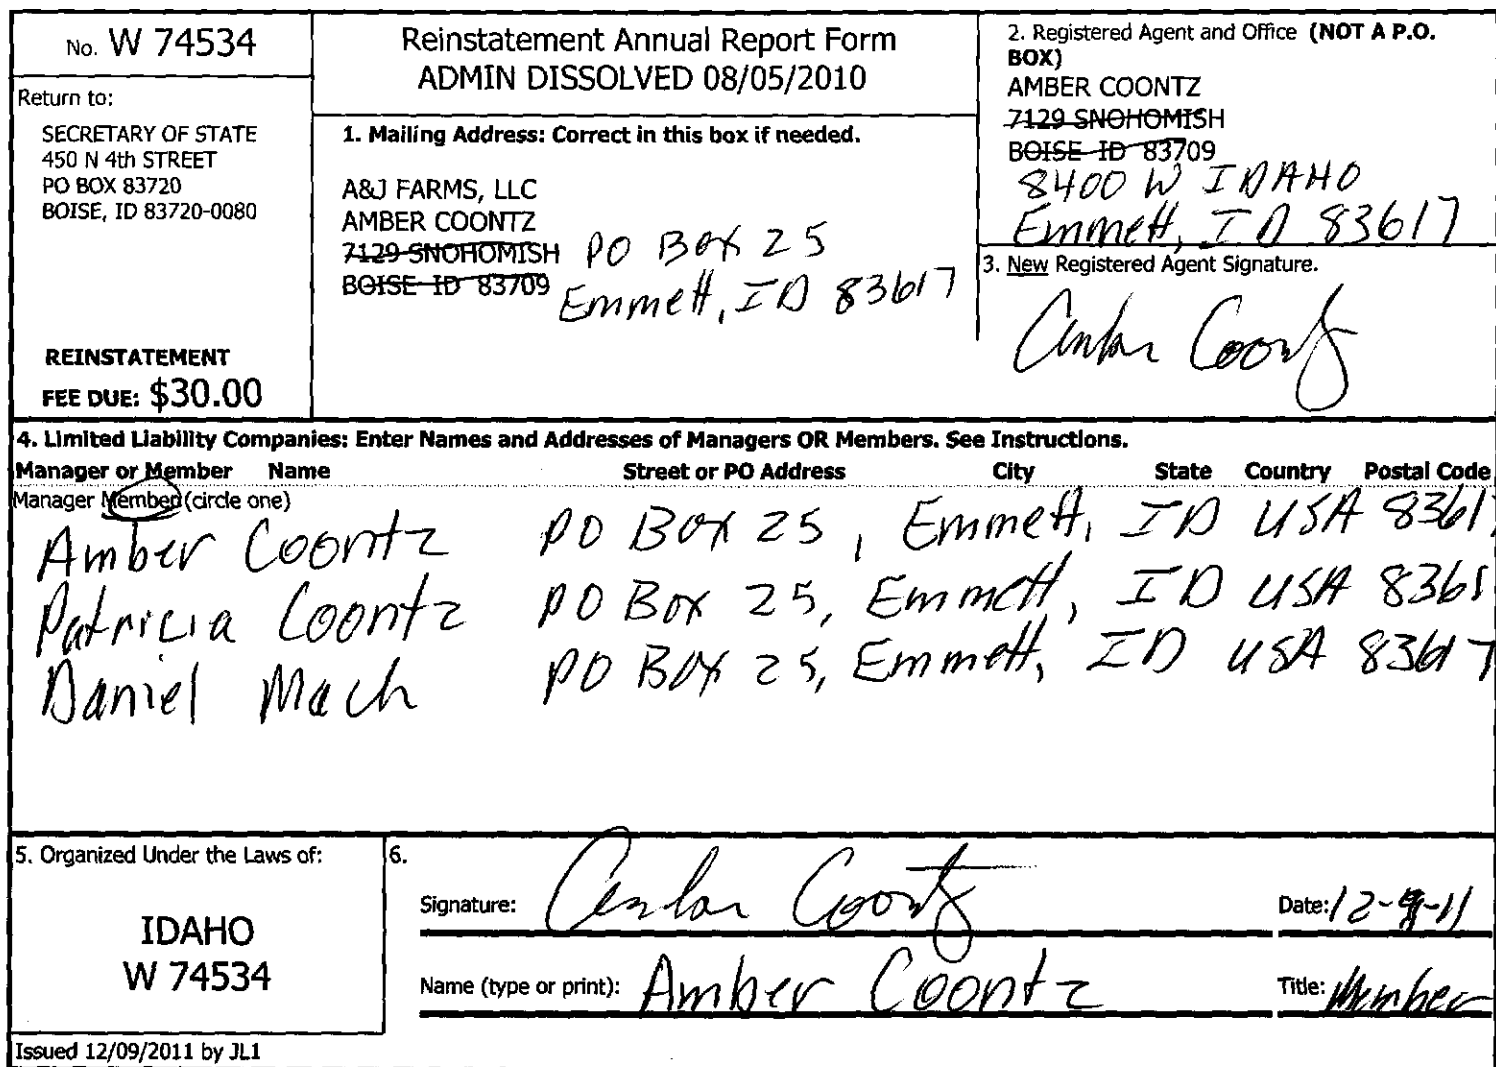 No. W 74534
Return to:
SECRETARY OF STATE
450 N 4th STREET
PO BOX 83720
BOISE, ID 83720-0080
REINSTATEMENT
FEE DUE: $30.00
Reinstatement Annual Report Form
ADMIN DISSOLVED 08/05/2010
1. Mailing Address: Correct in this box if needed.
A&J FARMS, LLC
AMBER COONTZ
7129 SNOHOMISH PO Box 25
BOISE ID 83709 Emmett, ID 83617
2. Registered Agent and Office (NOT A P.O.
BOX)
AMBER COONTZ
7129 SNOHOMISH
BOISE ID 83709
8400 W IDAHO
Emmett, ID 83617
3. New Registered Agent Signature.
Amber Coontz
4. Limited Liability Companies: Enter Names and Addresses of Managers OR Members. See Instructions.
Manager or Member Name Street or PO Address City State Country Postal Code
Manager Member (circle one)
Amber Coontz PO Box 25, Emmett, ID USA 83617
Patricia Coontz PO Box 25, Emmett, ID USA 8361
Daniel Mach PO Box 25, Emmett, ID USA 83617
5. Organized Under the Laws of:
IDAHO
W 74534
6.
Signature: Amber Coontz Date: 12-9-11
Name (type or print): Amber Coontz Title: Member
Issued 12/09/2011 by JL1